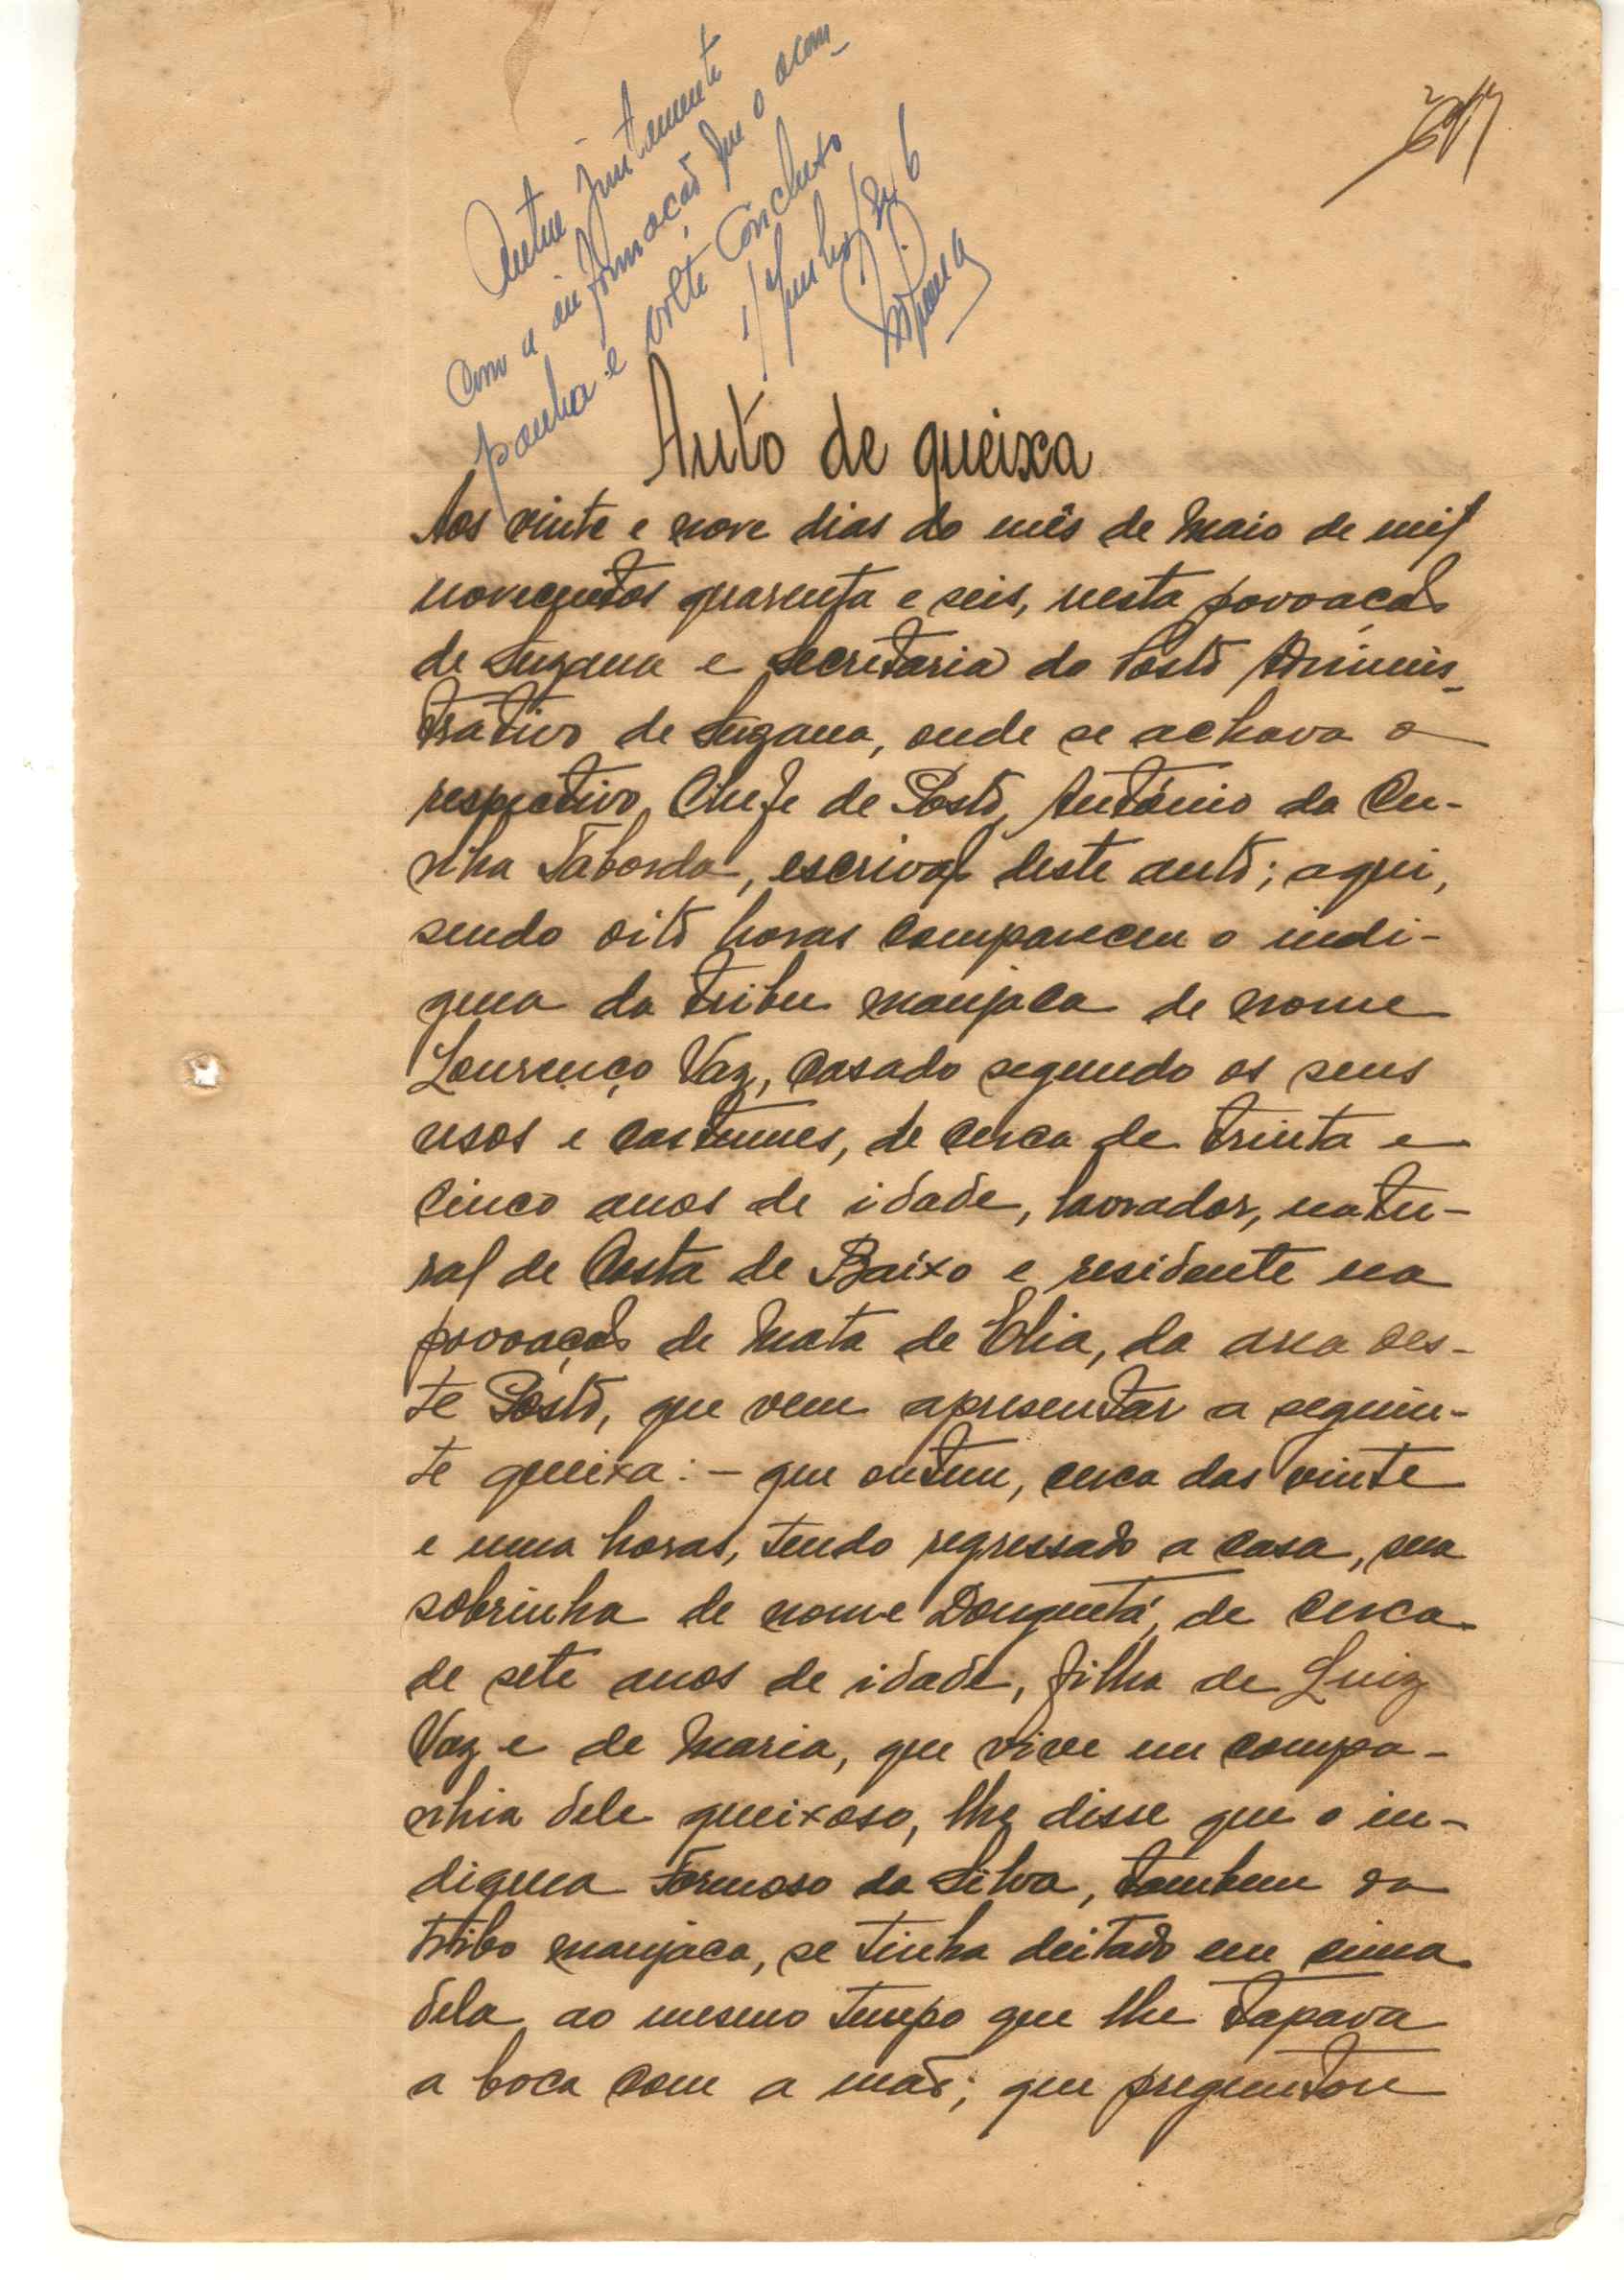 Autue juntamente
com a informação que o acom-
panha e volte concluso
1/Junho/946
Auto de queixa
Aos vinte e nove dias do mês de Maio de mil
novecentos quarenta e seis, nesta povoação
de Suzana e Secretaria do Posto Adminis-
trativo de Suzana, onde se achava o
respectivo Chefe de Posto, António da Cu-
nha Taborda, escrivão deste auto; aqui,
sendo oito horas compareceu o indi-
gena da tribu manjaca de nome
Lourenço Vaz, casado segundo os seus
usos e costumes, de cerca de trinta e
cinco anos de idade, lavrador, natu-
ral de Costa de Baixo e residente na
povoação de Mata de Elia, da area des-
te Posto, que vem apresentar a seguin-
te queixa: - que ontem, cerca das vinte
e uma horas, tendo regressado a casa, sua
sobrinha de nome Donguetá, de cerca
de sete anos de idade, filha de Luiz
Vaz e de Maria, que vive em compa-
nhia dele queixoso, lhe disse que o in-
digena Formoso da Silva, tambem da
tribo manjaca, se tinha deitado em cima
dela ao mesmo tempo que lhe tapava
a boca com a mão; que preguntou